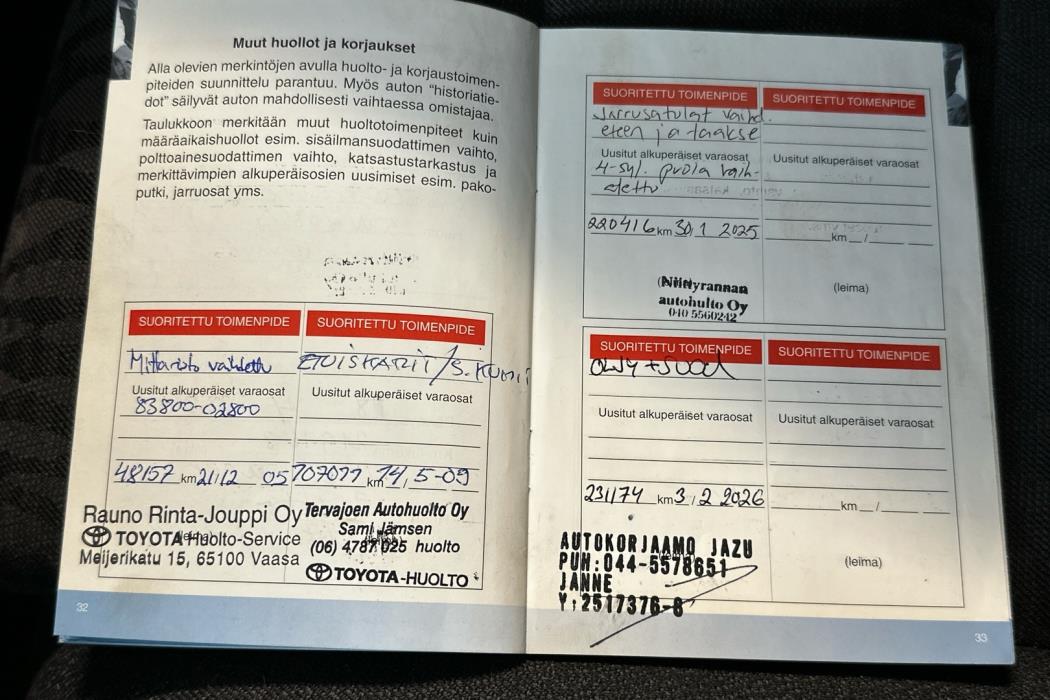 Muut huollot ja korjaukset
Alla olevien merkintöjen avulla huolto- ja korjaustoimen-
piteiden suunnittelu parantuu. Myös auton "historiatie-
dot" säilyvät auton mahdollisesti vaihtaessa omistajaa.
Taulukkoon merkitään muut huoltotoimenpiteet kuin
määräaikaishuollot esim. sisäilmansuodattimen vaihto,
polttoainesuodattimen vaihto, katsastustarkastus ja
merkittävimpien alkuperäisosien uusimiset esim. pako-
putki, jarruosat yms.
SUORITETTU TOIMENPIDE
Mittaristo vaihdettu
Uusitut alkuperäiset varaosat
83800-02800
48157 km 21/12 05
Rauno Rinta-Jouppi Oy
TOYOTA Huolto-Service
Meijerikatu 15, 65100 Vaasa
SUORITETTU TOIMENPIDE
ETUISKARIT/S.KUMIT
Uusitut alkuperäiset varaosat
107077 km 14/5-09
Tervajoen Autohuolto Oy
Sami Jämsen
(06) 4787 025 huolto
TOYOTA-HUOLTO
32
SUORITETTU TOIMENPIDE
Jarrusatulat vaihd.
eteen ja taakse
Uusitut alkuperäiset varaosat
4-syl. puola vaih-
dettu
220416 km 30/1 2025
Niittyrannan
autohuolto Oy
040 5560242
SUORITETTU TOIMENPIDE
Uusitut alkuperäiset varaosat
km /
(leima)
SUORITETTU TOIMENPIDE
Uusitut alkuperäiset varaosat
231174 km 3/2 2026
AUTOKORJAAMO JAZU
PUH:044-5578651
JANNE
Y:2517376-8
SUORITETTU TOIMENPIDE
Uusitut alkuperäiset varaosat
km /
(leima)
33